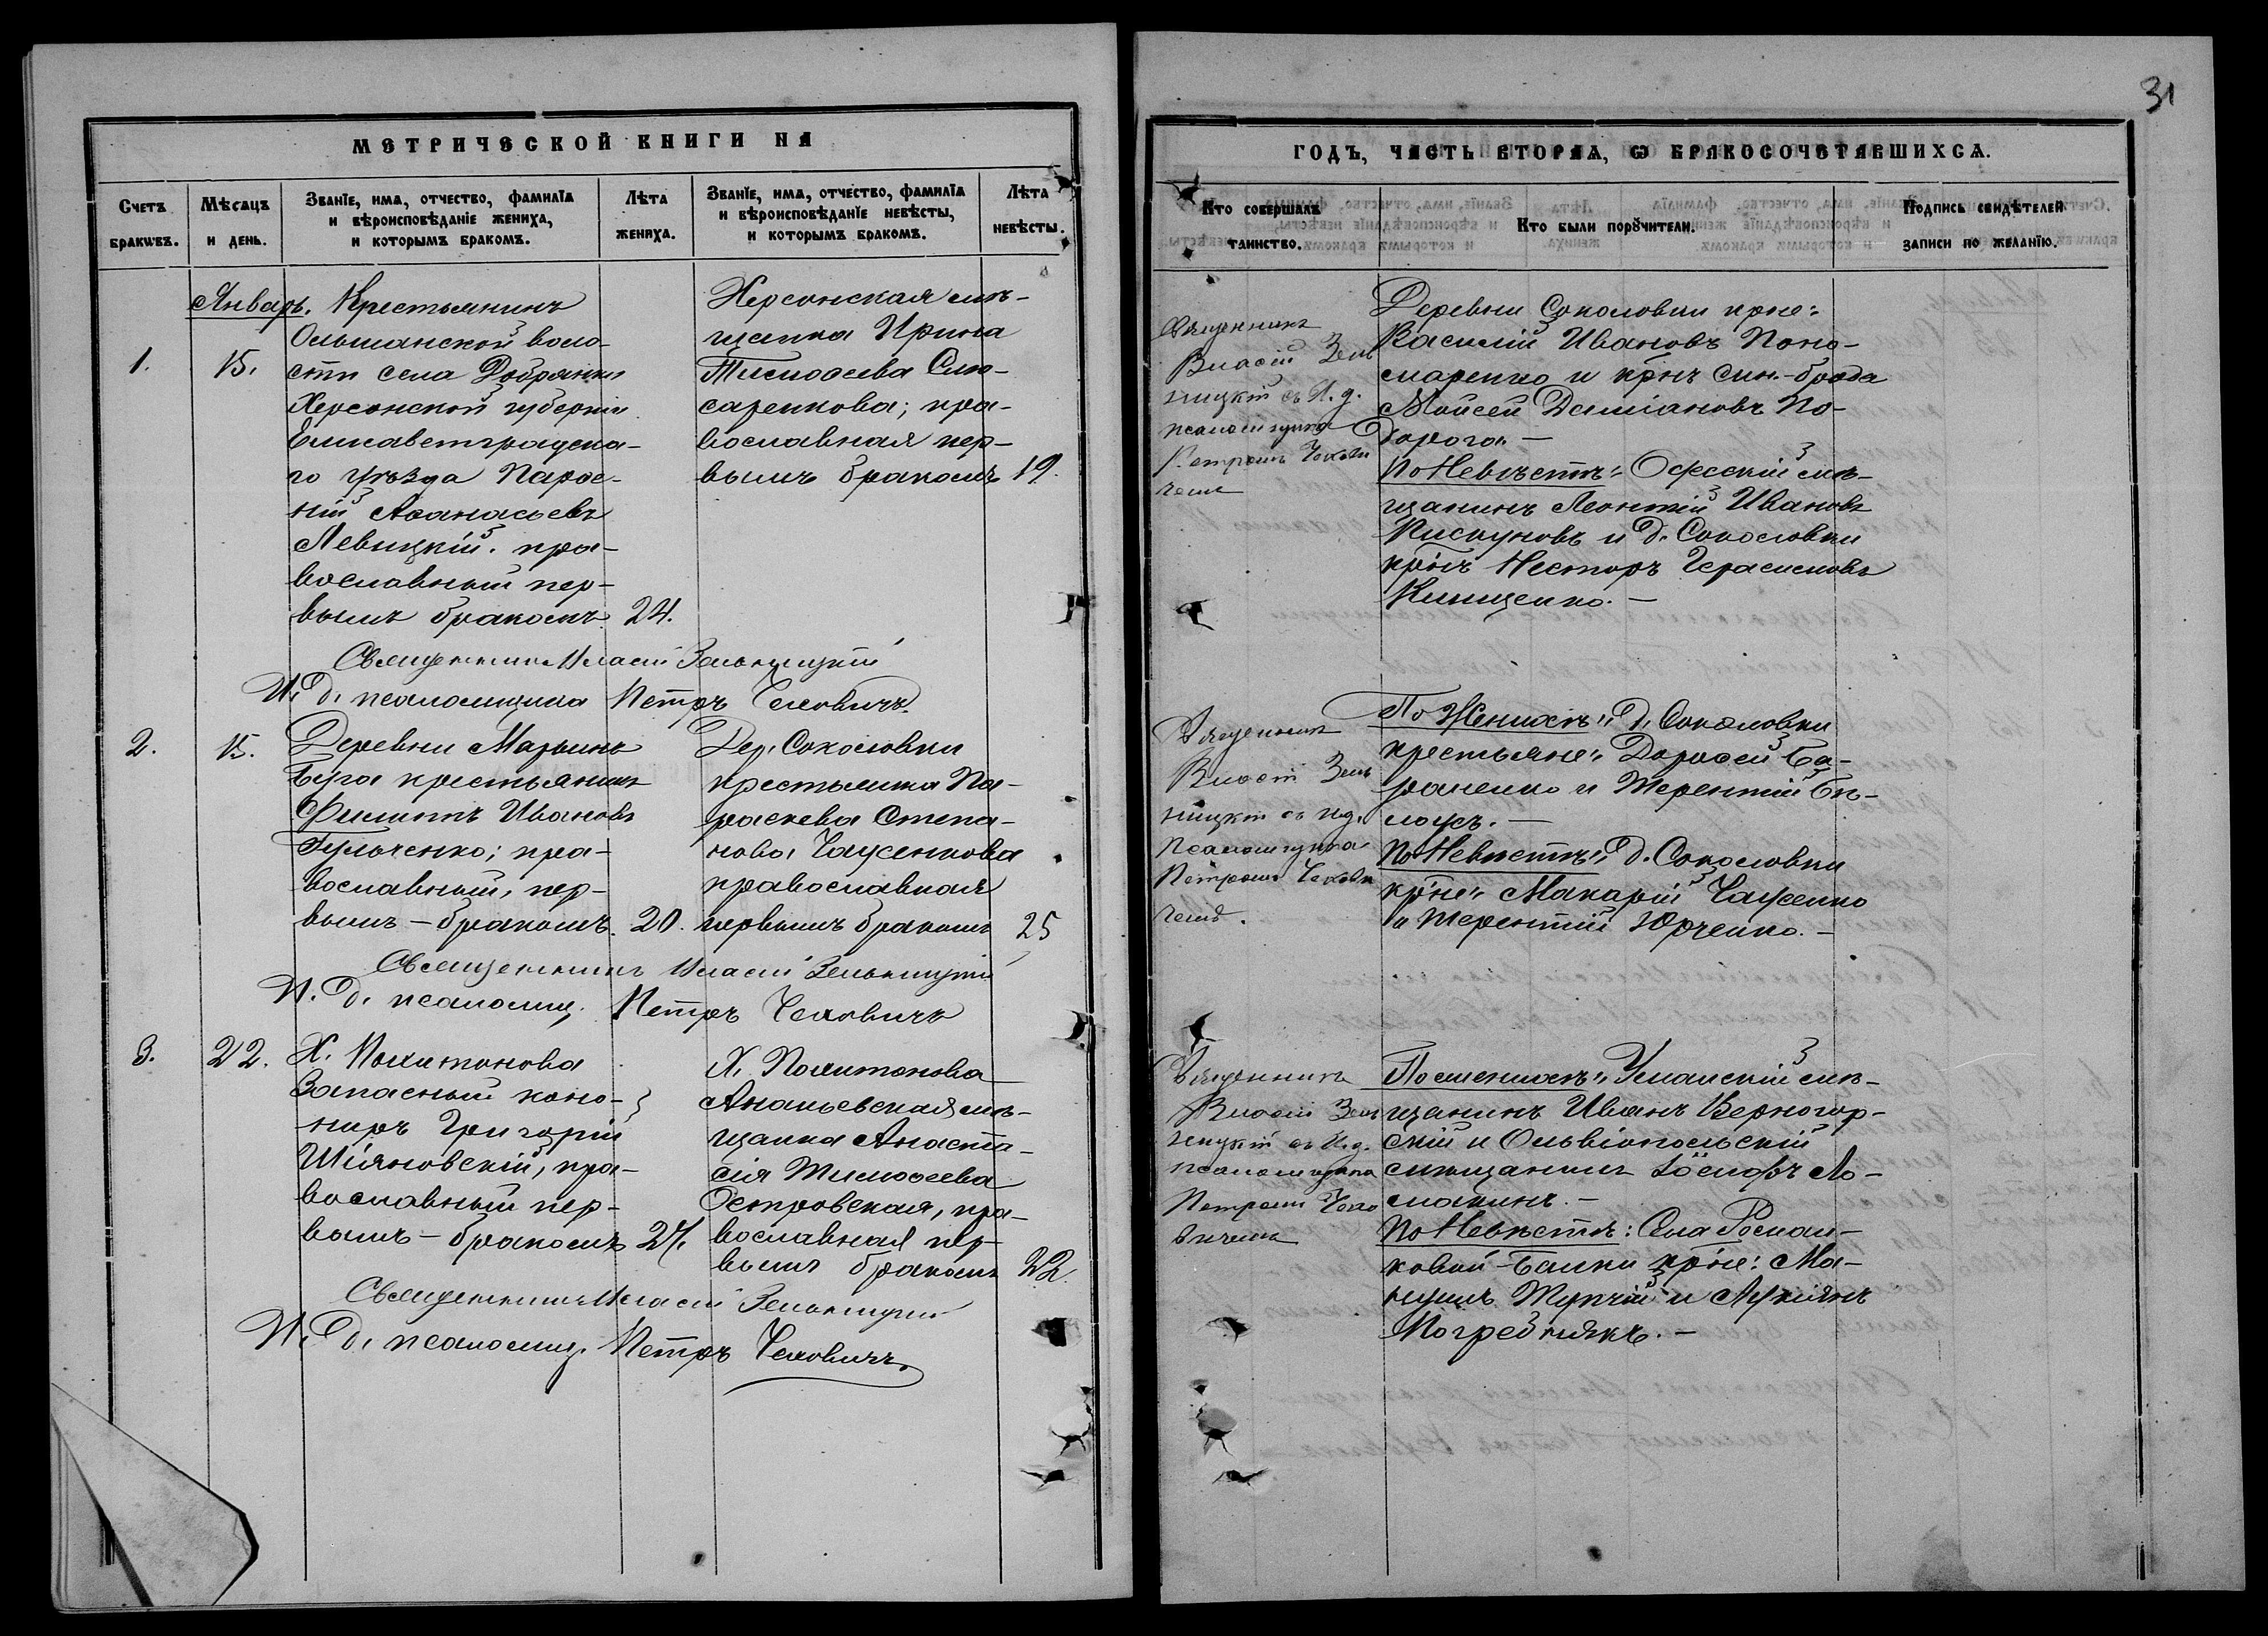 31
МЕТРИЧЕСКОЙ КНИГИ НА
Счетъ браковъ.
Мѣсяцъ и день.
Званіе, имя, отчество, фамилія и вѣроисповѣданіе жениха, и которымъ бракомъ.
Лѣта жениха.
Званіе, имя, отчество, фамилія и вѣроисповѣданіе невѣсты, и которымъ бракомъ.
Лѣта невѣсты.
Январь.
1.
15.
Крестьянинъ
Ольшанской воло-
сти села Добрянки
Херсонской губерніи
Елисаветградска-
го уѣзда Парѳе-
ній Аѳанасьевъ
Левицкій. пра-
вославный пер-
вымъ бракомъ.
24.
Херсонская мѣ-
щанка Ирина
Тимоѳеева Слю-
саренкова; пра-
вославная пер-
вымъ бракомъ
19.
Священникъ Власій Зельницкій
И. д. псаломщика Петръ Чехо́вичъ.
2.
15.
Деревни Марьинъ
Буга крестьянинъ
Филиппъ Ивановъ
Гульченко; пра-
вославный, пер-
вымъ – бракомъ.
20.
Дер. Соколовки
крестьянка Па-
раскева Степа-
нова Чаусенкова
православная
первымъ бракомъ
25
Священникъ Власій Зельницкій
И. д. псаломщ. Петръ Чеховичъ
3.
22.
Х. Политонова
Запасный кано-
ниръ Григорій
Шіяновскій, пра-
вославный пер-
вымъ – бракомъ
27.
Х. Политонова
Ананьевская мѣ-
щанка Анаста-
сія Тимоѳеева
Островская, пра-
вославная пер-
вымъ бракомъ
22.
Священникъ Власій Зельницкій
И. д. псаломщ. Петръ Чеховичъ.
ГОДЪ, ЧАСТЬ ВТОРАЯ, Ѡ БРАКОСОЧЕТАВШИХСЯ.
Кто совершалъ таинство.
Кто были поручители.
Подпись свидѣтелей записи по желанію.
Священникъ
Власій Зель
ницкій съ И. д.
псаломщика
Петромъ Чехови
чемъ
Деревни Соколовки крне:
Василій Ивановъ Поно-
маренко и крнъ Син.-брода
Мойсей Даміановъ По-
дорога. –
По Невѣстѣ: Одесскій мѣ-
щанинъ Леонтій Ивановъ
Пискуновъ и д. Соколовки
крнъ Несторъ Герасимовъ
Кищенко. –
Священникъ
Власій Зель
ницкій съ И.д.
псаломщика
Петромъ Чехови
чемъ.
По Женихѣ: Д. Соколовки
крестьяне: Дороѳей Ба-
раненко и Терентій Бѣ-
лоусъ. –
По Невѣстѣ: Д. Соколовки
крне: Макарій Чаусенко
и Терентій Юрченко. –
Священникъ
Власій Зель
ницкій съ И.д.
псаломщика
Петромъ Чехо
вичемъ
По женихѣ: Уманскій мѣ-
щанинъ Иванъ Верногор-
скій и Ольвіопольскій
мѣщанинъ Іосифъ Ло-
макинъ. –
По Невѣстѣ: Села Роман-
ковой-Балки крне: Ма-
ксимъ Тупчій и Лукіянъ
Погребнякъ. –